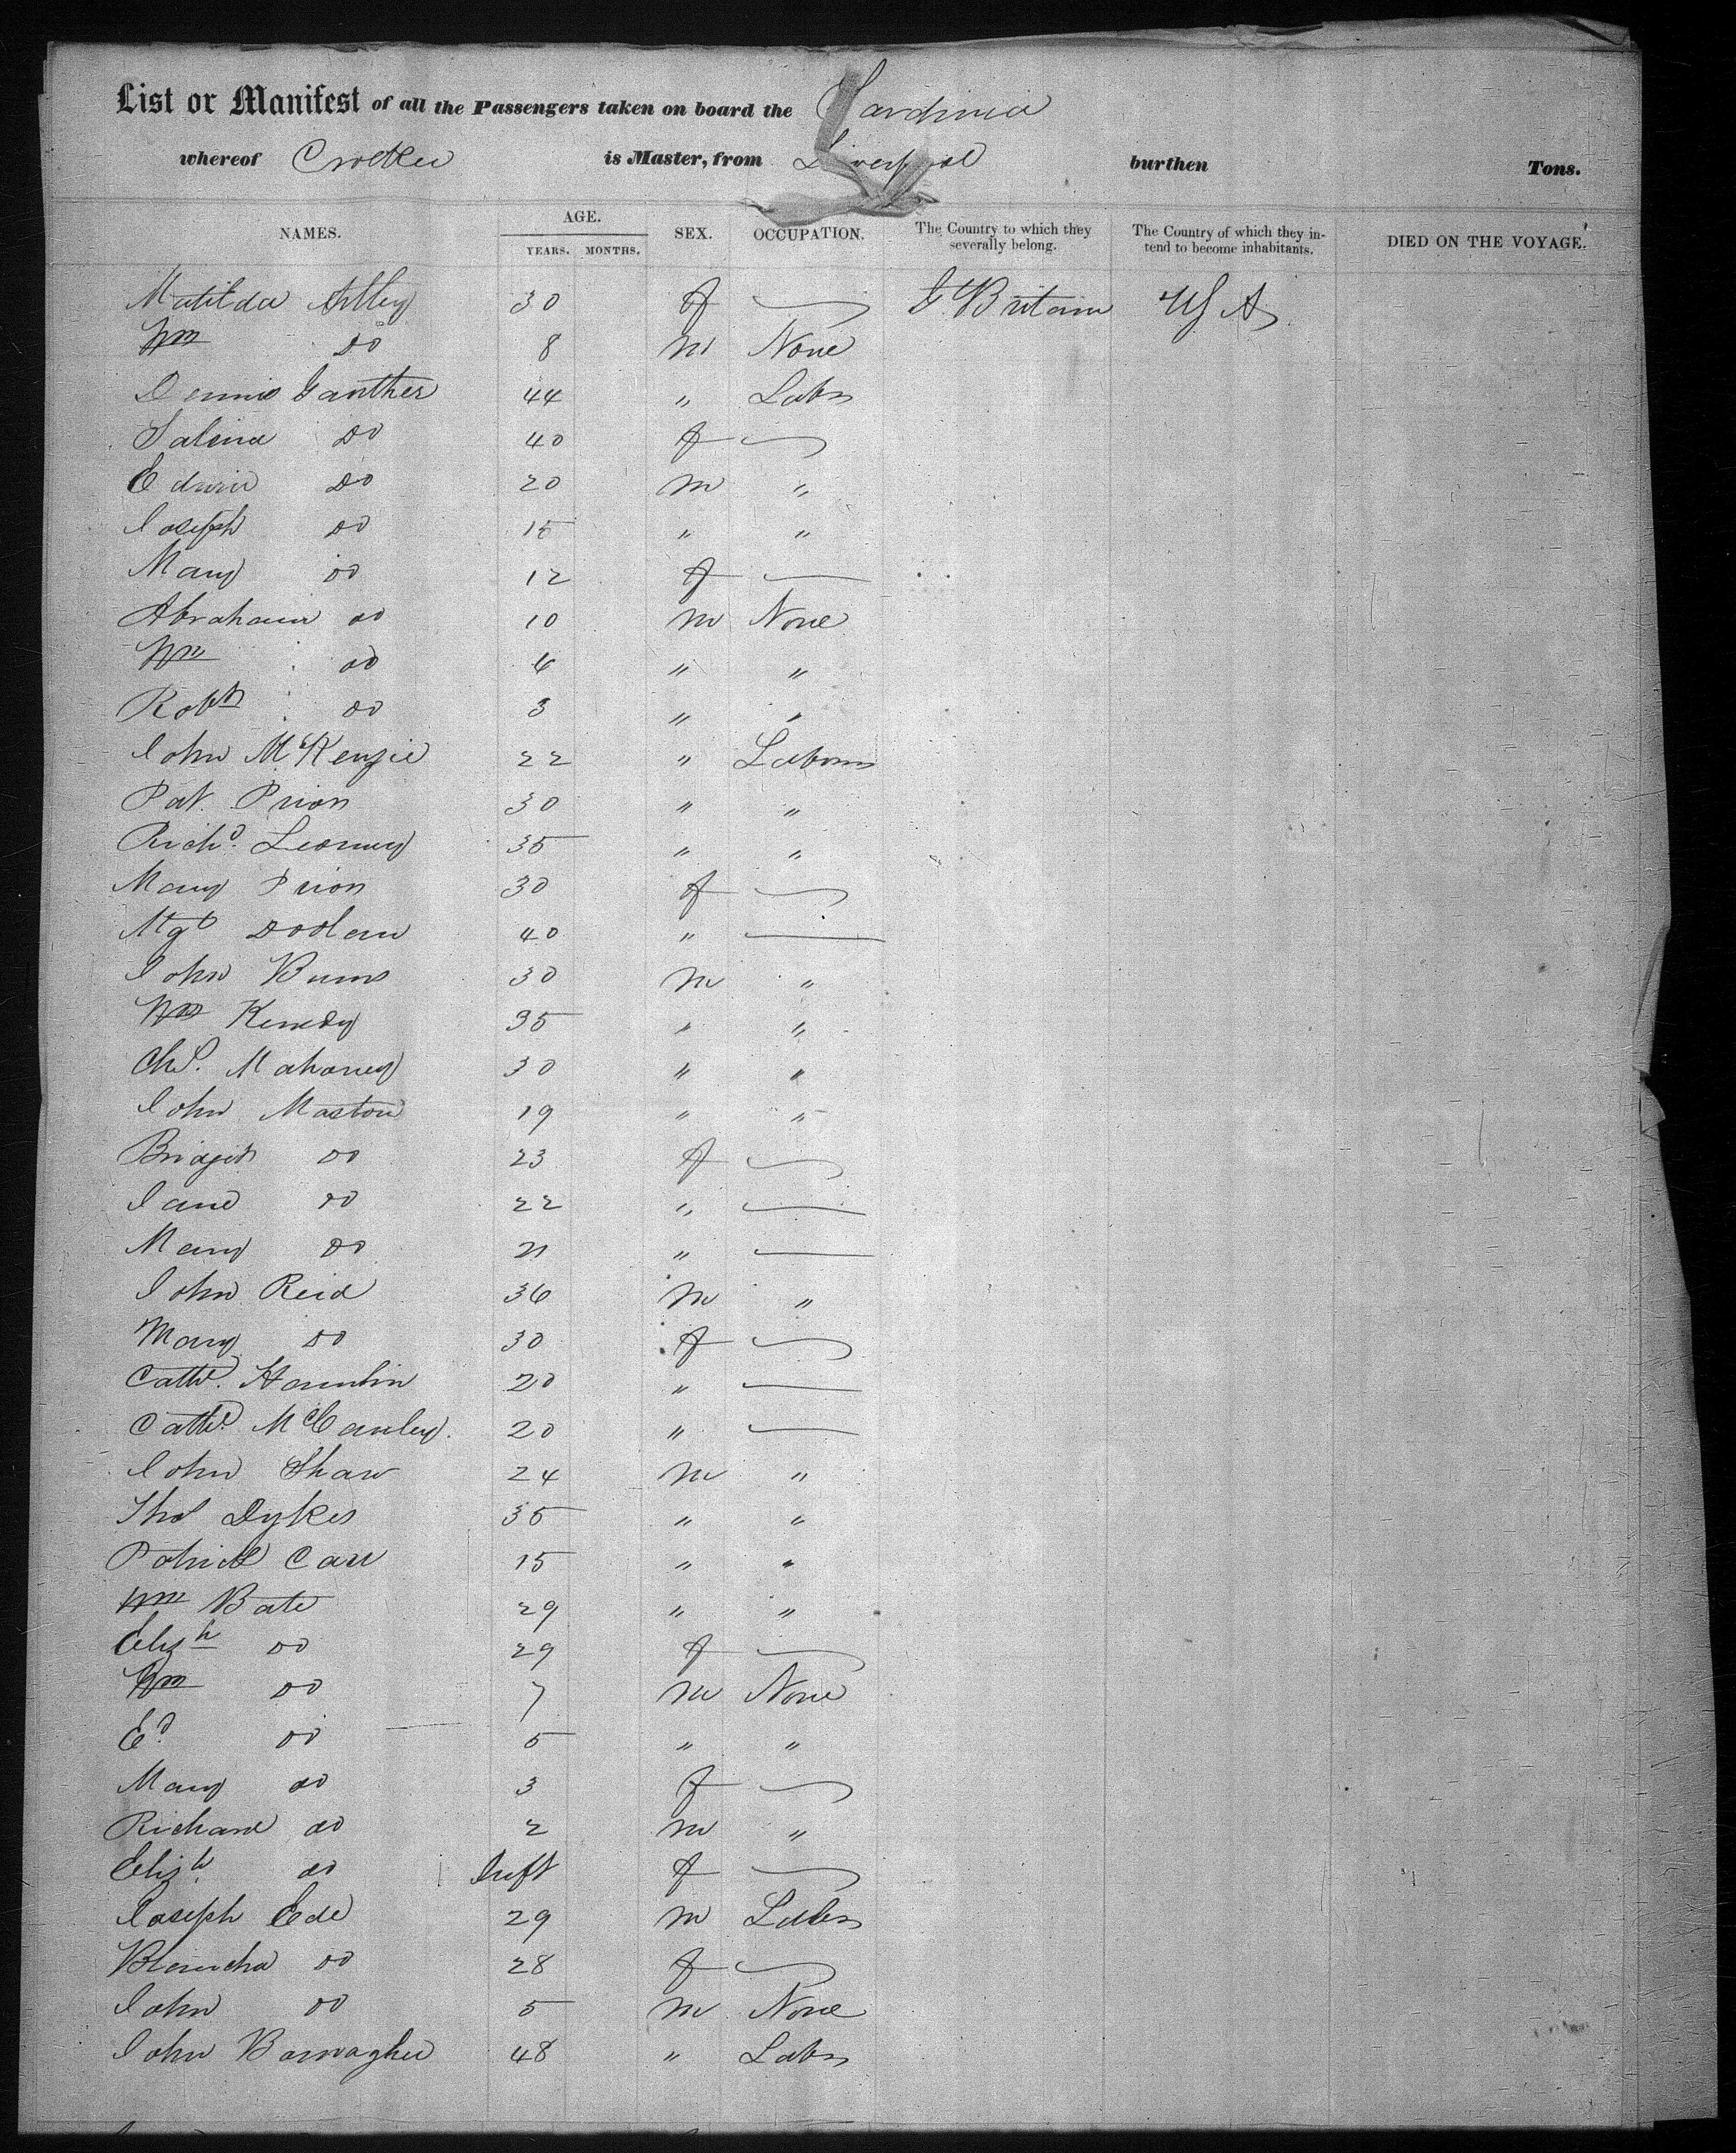 List or Manifest of all the Passengers taken on board the Sardinia
whereof is Master, from Liverpool burthen Tons.
NAMES. AGE. YEARS. MONTHS. SEX. OCCUPATION. The Country to which they severally belong. The Country of which they intend to become inhabitants. DIED ON THE VOYAGE.
Matilda 30 f — Gt Britain U S A
Wm Do 8 m None
Dennis Ganther 44 " Labr
Salina Do 40 f —
Edwin Do 20 m "
Joseph Do 15 " "
Mary Do 12 f —
Abraham Do 10 m None
Wm Do 6 " "
Robt Do 3 " "
John McKenzie 22 " Labour
Pat. Prion 30 " "
Richd. 35 " "
Mary Prion 30 f —
Mgt Doolan 40 " —
John Burns 30 m "
Wm Kenedy 35 " "
Chs. Mahoney 30 " "
John Maston 19 " "
Bridget Do 23 f —
Jane Do 22 " —
Mary Do 21 " —
John Reid 36 m "
Mary Do 30 f —
Cathe. Hamlin 20 " —
Cathe. McCauley. 20 " —
John Shaw 24 m "
Thos Dykes 35 " "
Patrick Carr 15 " "
Wm Bate 29 " "
Elizh Do 29 f —
Wm Do 7 m None
Ed. Do 5 " "
Mary Do 3 f —
Richard Do 2 m "
Elizh. Do Inft f —
Joseph Ede 29 m Labr
Blancha Do 28 f —
John Do 5 m None
John Barnagher 48 " Labr